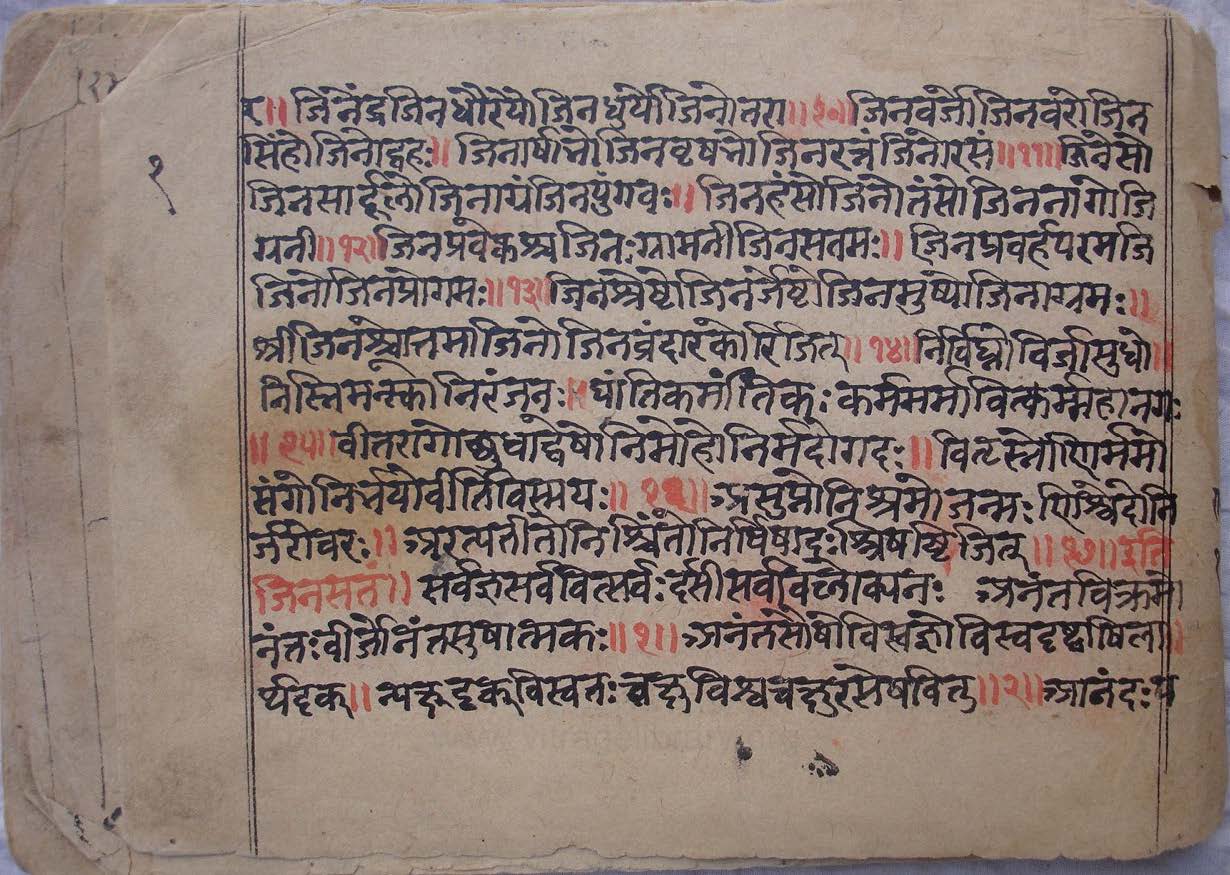 १
र॥ जिनेंद्रजिनधौरेयो जिनधुर्यो जिनोत्तरा॥ १०॥ जिनवर्जो जिनवरो जिन
सिंहो जिनोद्वहः॥ जिनार्षाभो जिनवृषभो जिनरत्नं जिनोरसं॥ ११॥ जिनेसो
जिनसार्दूलो जिनाग्रं जिनपुंगवः॥ जिनहंसो जिनोतंसो जिननागो जि
ग्रनी॥ १२॥ जिनप्रवेकश्च जिनः ग्रामनी जिनसतमः॥ जिनप्रवर्हपरमजि
जिनो जिनप्रोगमः॥ १३॥ जिनश्रेष्टो जिनर्जेष्टो जिनमुष्यो जिनाग्रमः॥
श्रीजिनश्चोत्तमो जिनो जिनव्रंदारकोरिजित्॥ १४॥ निर्विघ्नो विर्जासुधो॥
निस्तिमस्को निरंजनः॥ घांतिकर्मांतिकः कर्ममर्मावित्कर्म्महानगः
॥ १५॥ वीतरागो क्षुधाद्वेषो निर्मोहो निर्मदोगदः॥ वितृस्नो र्णिर्ममो
संगो निर्भयो वीर्तविस्मयः॥ १६॥ असुप्नो निश्रमो जन्मः णिश्वेदो नि
र्जरो वरः॥ अरत्यतीतो निश्चिंतो निर्विषादः श्रिषष्टिजित्॥ १७॥ इति
जिनसतं॥ सर्वज्ञसर्ववित्सर्वः दंसी सर्वावलोक्यनः अनंतविक्रमो
नंतः वीर्जोनंतसुषात्मकः॥ १॥ अनंतसौषो विस्वज्ञो विस्वदृष्वाषिला॥
र्थदृक्॥ न्यक्षदृक् विस्वतः चक्षु विश्वचक्षुरसेषवितु॥ २॥ आनंदः प